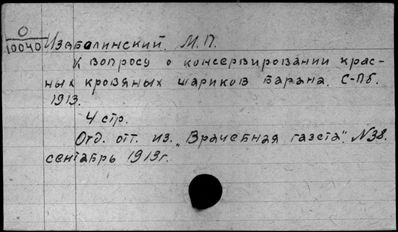 О
10040
Изаболинский, М.П.
К вопросу о консервировании крас-
ных кровяных шариков барана. С-Пб.
1913.
4 стр.
Отд. отт. из „Врачебная газета". №38.
сентябрь 1913г.